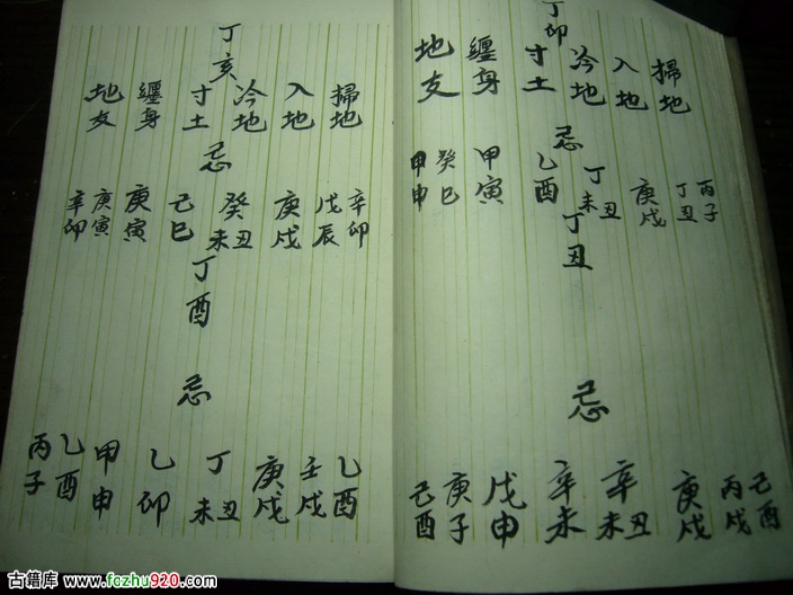 丁卯
掃地
入地
冷地
寸土
纏身
地支
忌
丙子
丁丑
庚戌
丁丑未
乙酉
甲寅
癸巳
甲申
丁丑
忌
己酉
丙戌
庚戌
辛丑未
辛未
戊申
庚子
己酉
丁亥
掃地
入地
冷地
寸土
纏身
地支
忌
辛卯
戊辰
庚戌
癸丑未
己巳
庚寅
庚寅
辛卯
丁酉
忌
乙酉
壬戌
庚戌
丁丑未
乙卯
甲申
乙酉
丙子
古籍库 www.fozhu920.com